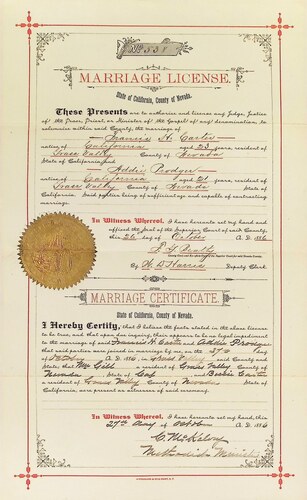 No. 538
MARRIAGE LICENSE.
State of California, County of Nevada.
These Presents are to authorize and license any Judge, Justice
of the Peace, Priest, or Minister of the Gospel of any denomination, to
solemnize within said County, the marriage of
Francis H. Carter
native of California aged 23 years, resident of
Grass Valley County of Nevada
State of California, and
Addie Prodger
native of California aged 21 years, resident of
Grass Valley County of Nevada
State of California. Said parties being of sufficient age and capable of contracting
marriage.
In Witness Whereof, I have hereunto set my hand and
affixed the Seal of the Superior Court of said County,
this 26 day of October A. D. 1886
By Deputy Clerk.
MARRIAGE CERTIFICATE.
State of California, County of Nevada.
I Hereby Certify, that I believe the facts stated in the above license
to be true, and that upon due inquiry, there appears to be no legal impediment
to the marriage of said Francis H. Carter and Addie Prodger
that said parties were joined in marriage by me, on the 27th day
of October A. D. 1886 in Grass Valley said County and
State; that a resident of Grass Valley County of
Nevada State of Cal and Carter
a resident of Grass Valley County of Nevada State of
California, were present as witnesses of said ceremony.
In Witness Whereof, I have hereunto set my hand, this
27th day of October A. D. 1886
C. McKelvey
Methodist Minister